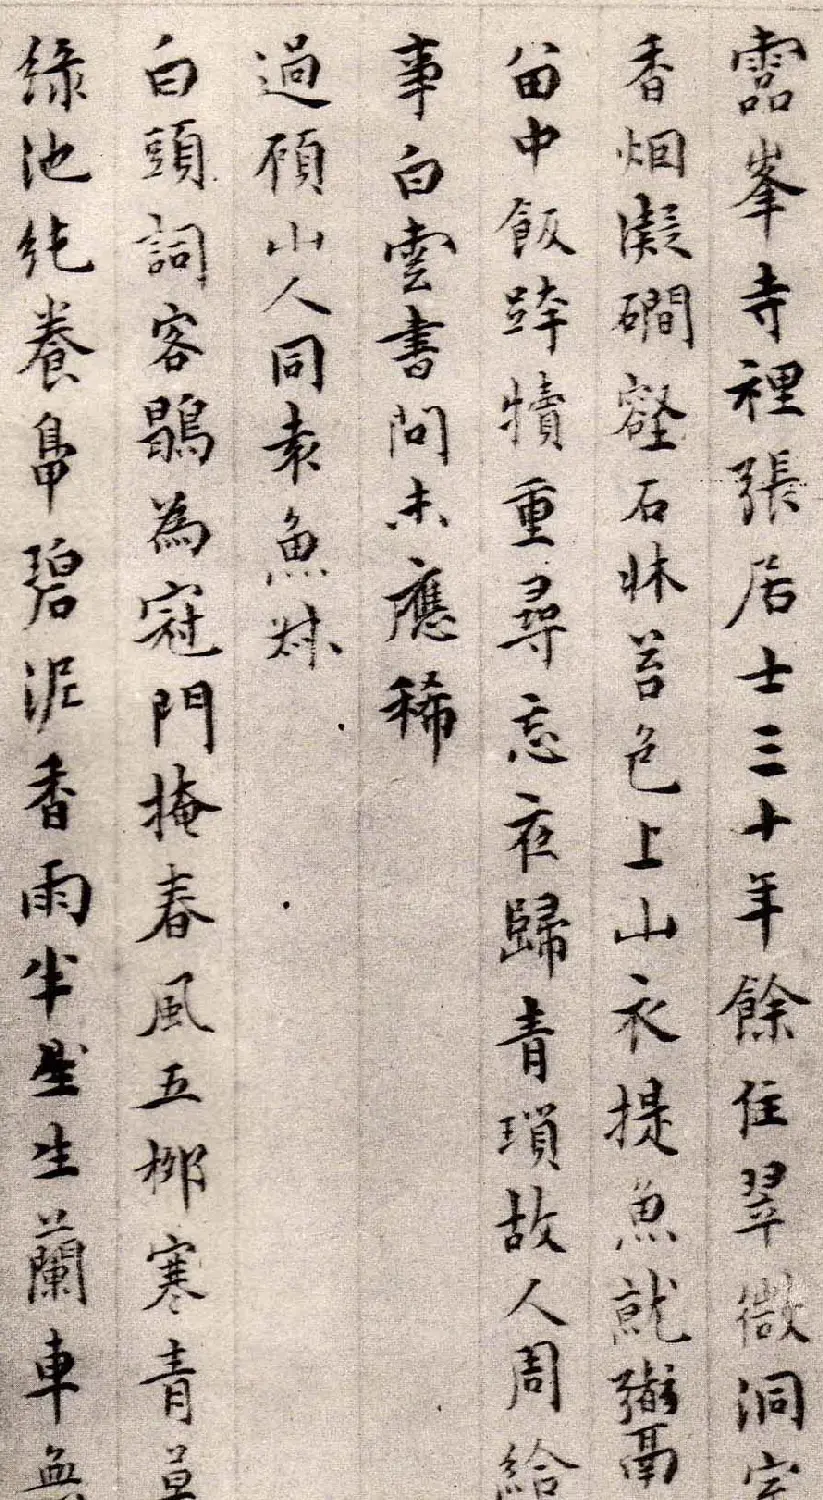 靈峯寺裡張居士三十年餘住翠微洞
香烟凝磵壑石牀苔色上山衣提魚就鬻
畨中飯跨犢重尋忘夜歸青瑣故人周給
事白雲書問未應稀
過碩山人同袁魚
白頭詞客鶡為冠門掩春風五柳寒青草
綠池純養鼻碧泥香雨半星生蘭車無